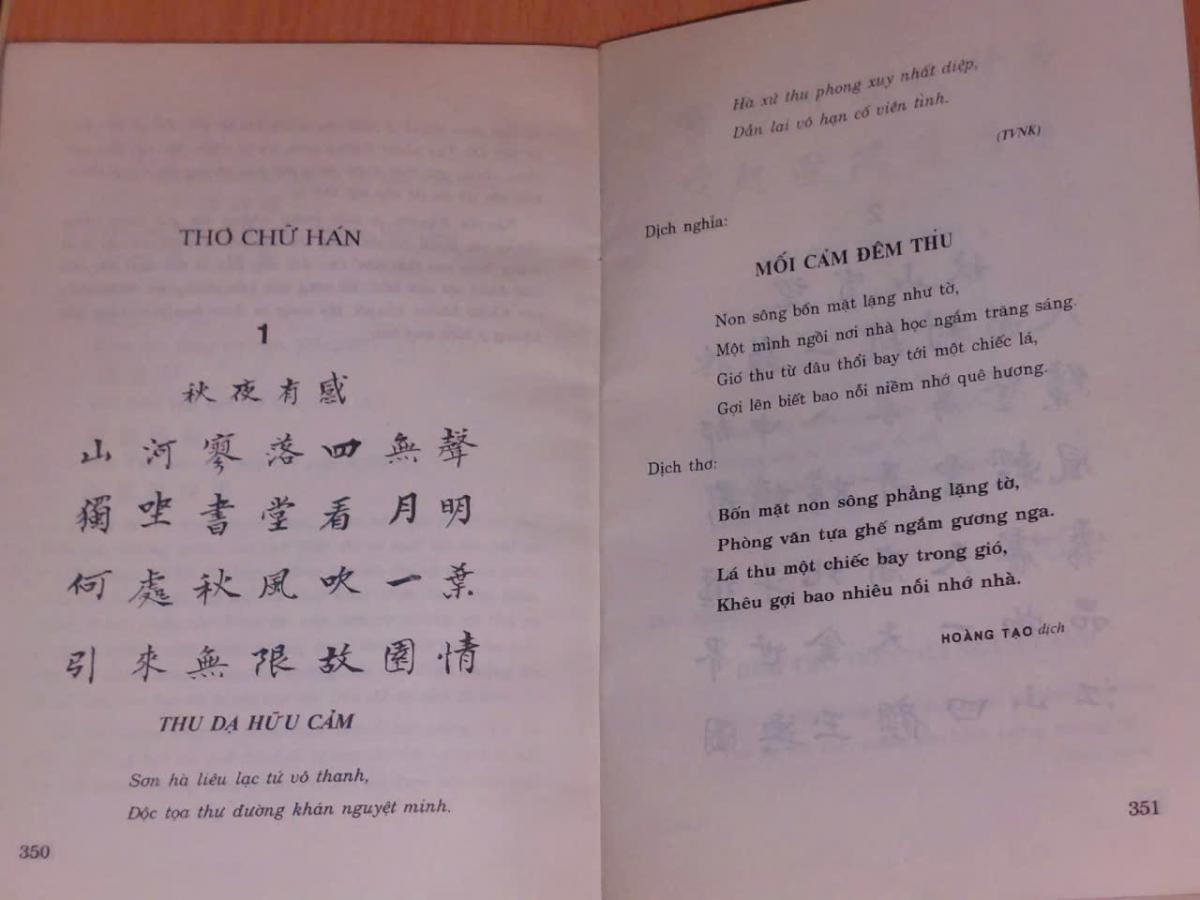 THƠ CHỮ HÁN
1
秋夜有感
山河寥落四無聲
獨坐書堂看月明
何處秋風吹一葉
引來無限故園情
THU DẠ HỮU CẢM
Sơn hà liêu lạc tứ vô thanh,
Độc tọa thư đường khán nguyệt minh.
350
Hà xứ thu phong xuy nhất diệp,
Dẫn lai vô hạn cố viên tình.
(TVNK)
Dịch nghĩa:
MỐI CẢM ĐÊM THU
Non sông bốn mặt lặng như tờ,
Một mình ngồi nơi nhà học ngắm trăng sáng.
Gió thu từ đâu thổi bay tới một chiếc lá,
Gợi lên biết bao nỗi niềm nhớ quê hương.
Dịch thơ:
Bốn mặt non sông phẳng lặng tờ,
Phòng văn tựa ghế ngắm gương nga.
Lá thu một chiếc bay trong gió,
Khêu gợi bao nhiêu nỗi nhớ nhà.
HOÀNG TẠO dịch
351